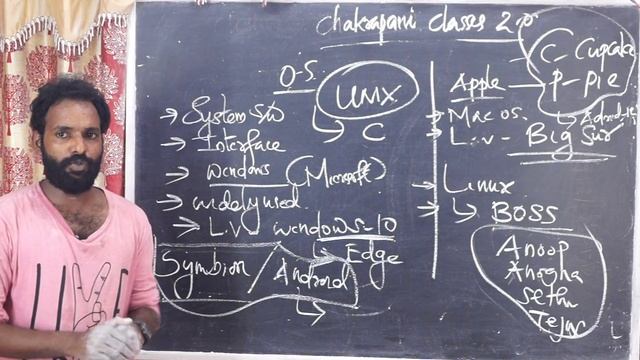 chakrapani classes 2.0
O-S.
UNIX
C
→ System S/W
→ Interface
→ windows (Microsoft)
→ widely used.
→ L.V windows-10
Edge
Symbian / Android
C- Cupcake
P- Pie
Apple
Mac OS.
L.v - Big Sur
Linux
BOSS
Anoop
Anagha
Sethu